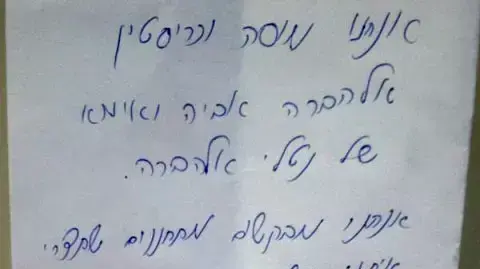 אנחנו מוסה וכריסטין
אלהברה אביה ואימא
של נטלי אלהברה.
אנחנו מבקשים מתחננים שתצרי